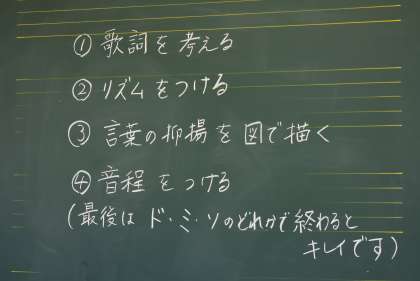 ① 歌詞を考える
② リズムをつける
③ 言葉の抑揚を図で描く
④ 音程をつける
(最後は ド・ミ・ソのどれかで終わると
キレイです)